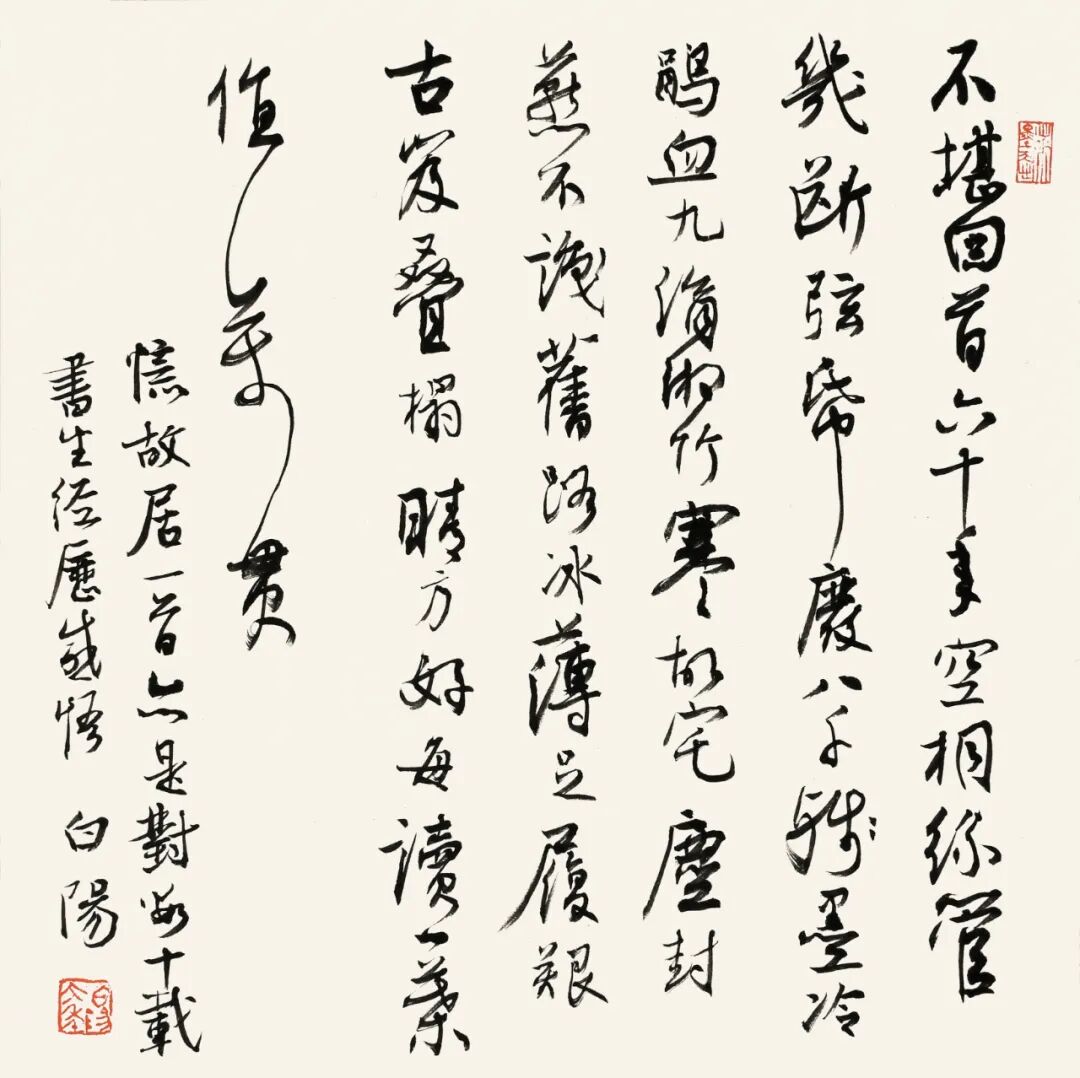 不堪囘首六十年空相絲管
幾断弦帋廢八千殘墨冷
鵑血九滴湘竹寒故宅塵封
燕不識舊路冰薄足履艱
古笈叠榻晴方好每讀一葉
值萬貫
憶故居一首亦是對數十載
書生經歷感悟 白陽